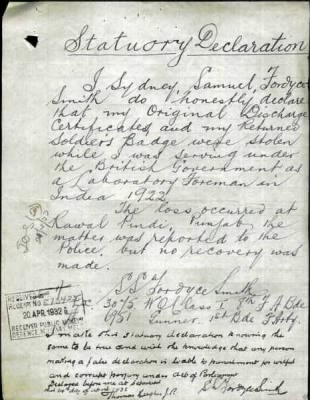 Statuory Declaration
I Sydney, Samuel, Fordyce
Smith do honestly declare
that my Original Discharge
Certificates, and my Returned
Soldiers Badge were stolen
while I was serving under
the British Government as
a Laboratory Foreman in
India 1922.
The loss occurred at
Rawal Pindi, Punjab, the
matter was reported to the
Police, but no recovery was
made.
S S Fordyce Smith
RECEIVED
20 APR 1932
Gunner 1st Bde F. Arty.
make this statutory declaration knowing the
same to be true and with the knowledge that any person
making a false declaration is liable to imprisonment for wilful
and corrupt perjury under act of Parliament
Declared before me at
Thomas J.P.
S S Fordyce Smith